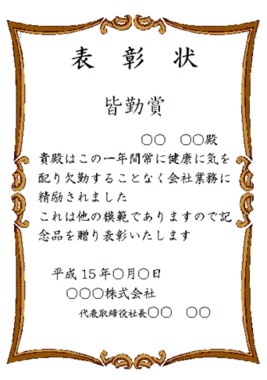 表彰状
皆勤賞
○○　○○殿
貴殿はこの一年間常に健康に気を
配り欠勤することなく会社業務に
精励されました
これは他の模範でありますので記
念品を贈り表彰いたします
平成15年○月○日
○○○株式会社
代表取締役社長○○　○○